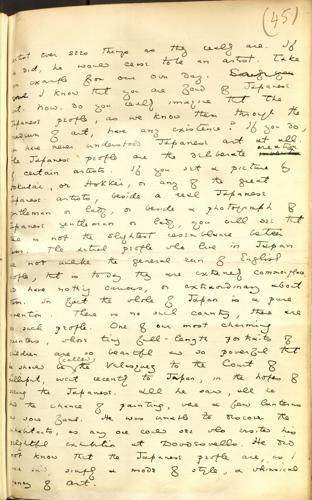 (45)
artist ever sees things as they really are. If
he did, he would cease to be an artist. Take
an example from our own day.
I know that you are fond of Japanese
art. Now, do you really imagine that the
Japanese people, as we know them through the
medium of art, have any existence? If you do,
you have never understood Japanese art at all.
The Japanese people are the deliberate creation
of certain artists. If you set a picture by
Hokusai, or Hokkei, or any of the great
Japanese artists, beside a real Japanese
gentleman or lady, or beside a photograph of
Japanese gentleman or lady, you will see that
there is not the slightest resemblance between
them. The actual people who live in Japan
are not unlike the general run of English
people, that is to say they are extremely commonplace
and have nothing curious, or extraordinary about
them. In fact the whole of Japan is a pure
invention. There is no such country, there are
no such people. One of our most charming
painters, whose tiny full-length portraits of
children are so beautiful and so powerful that
he should be called the Velasquez to the Court of
Lilliput, went recently to Japan, in the hopes of
seeing the Japanese. All he saw, all he
had the chance of painting, were a few lanterns
and some fans. He was unable to discover the
inhabitants, as any one could see who visited his
delightful exhibition at Dowdeswells. He did
not know that the Japanese people are, as I
have said, simply a mode of style, a whimsical
fancy of art.